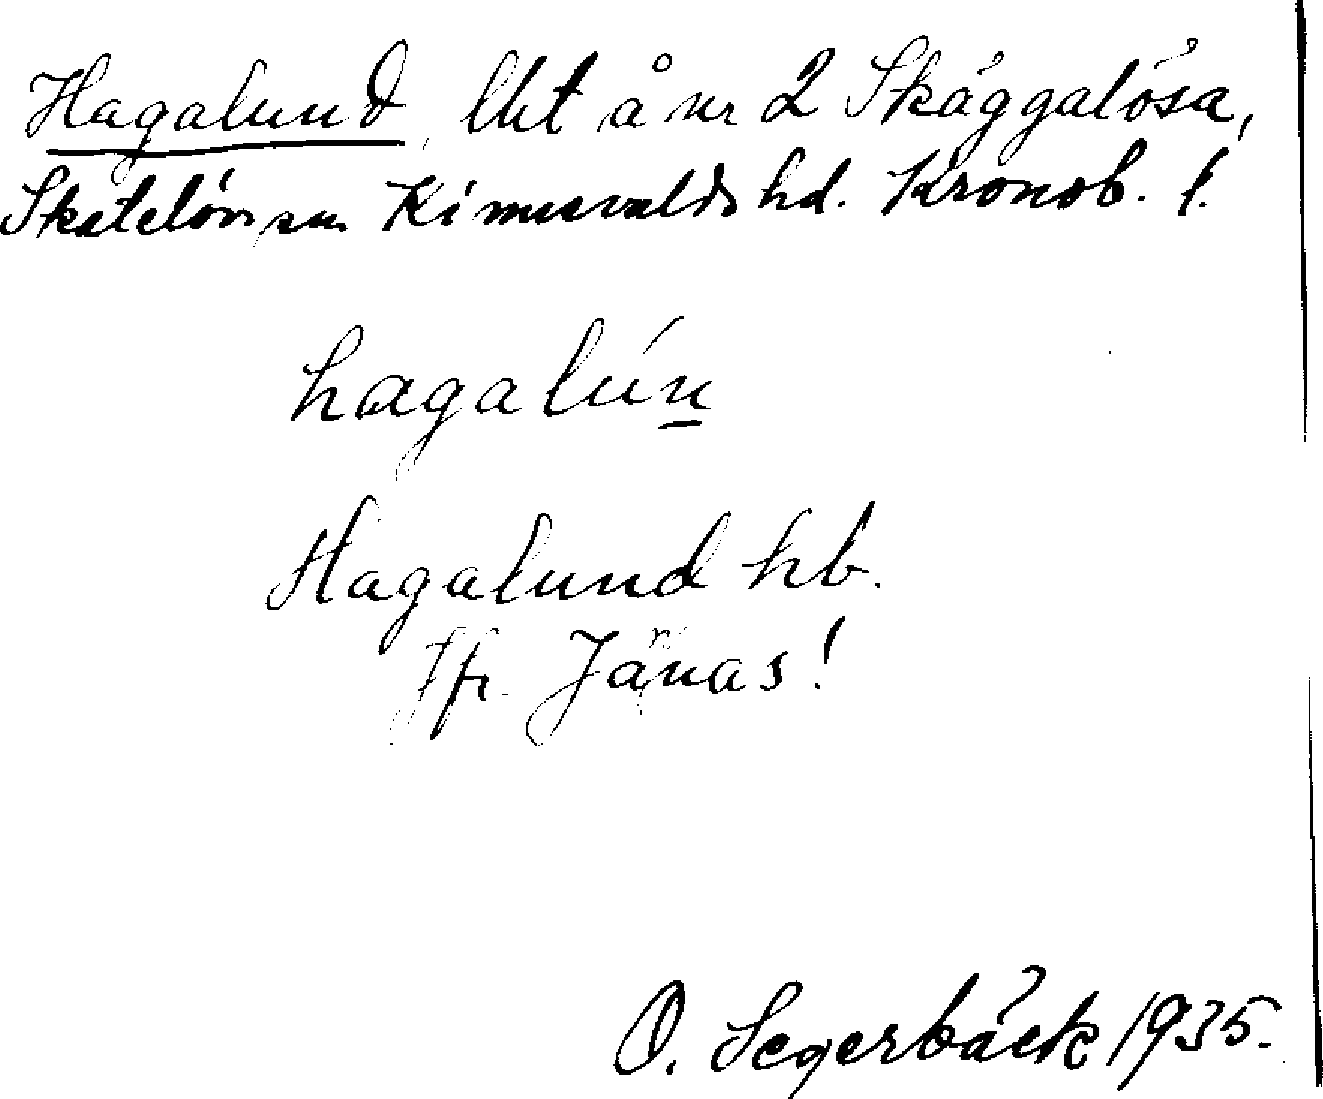 Hagalund, lht å nr 2 Skäggalösa,
Skatelövs sn Kinnevalds hd. Kronob. l.
hagalún
Hagalund hb.
Jfr. Jänas!
O. Segerbäck 1935.